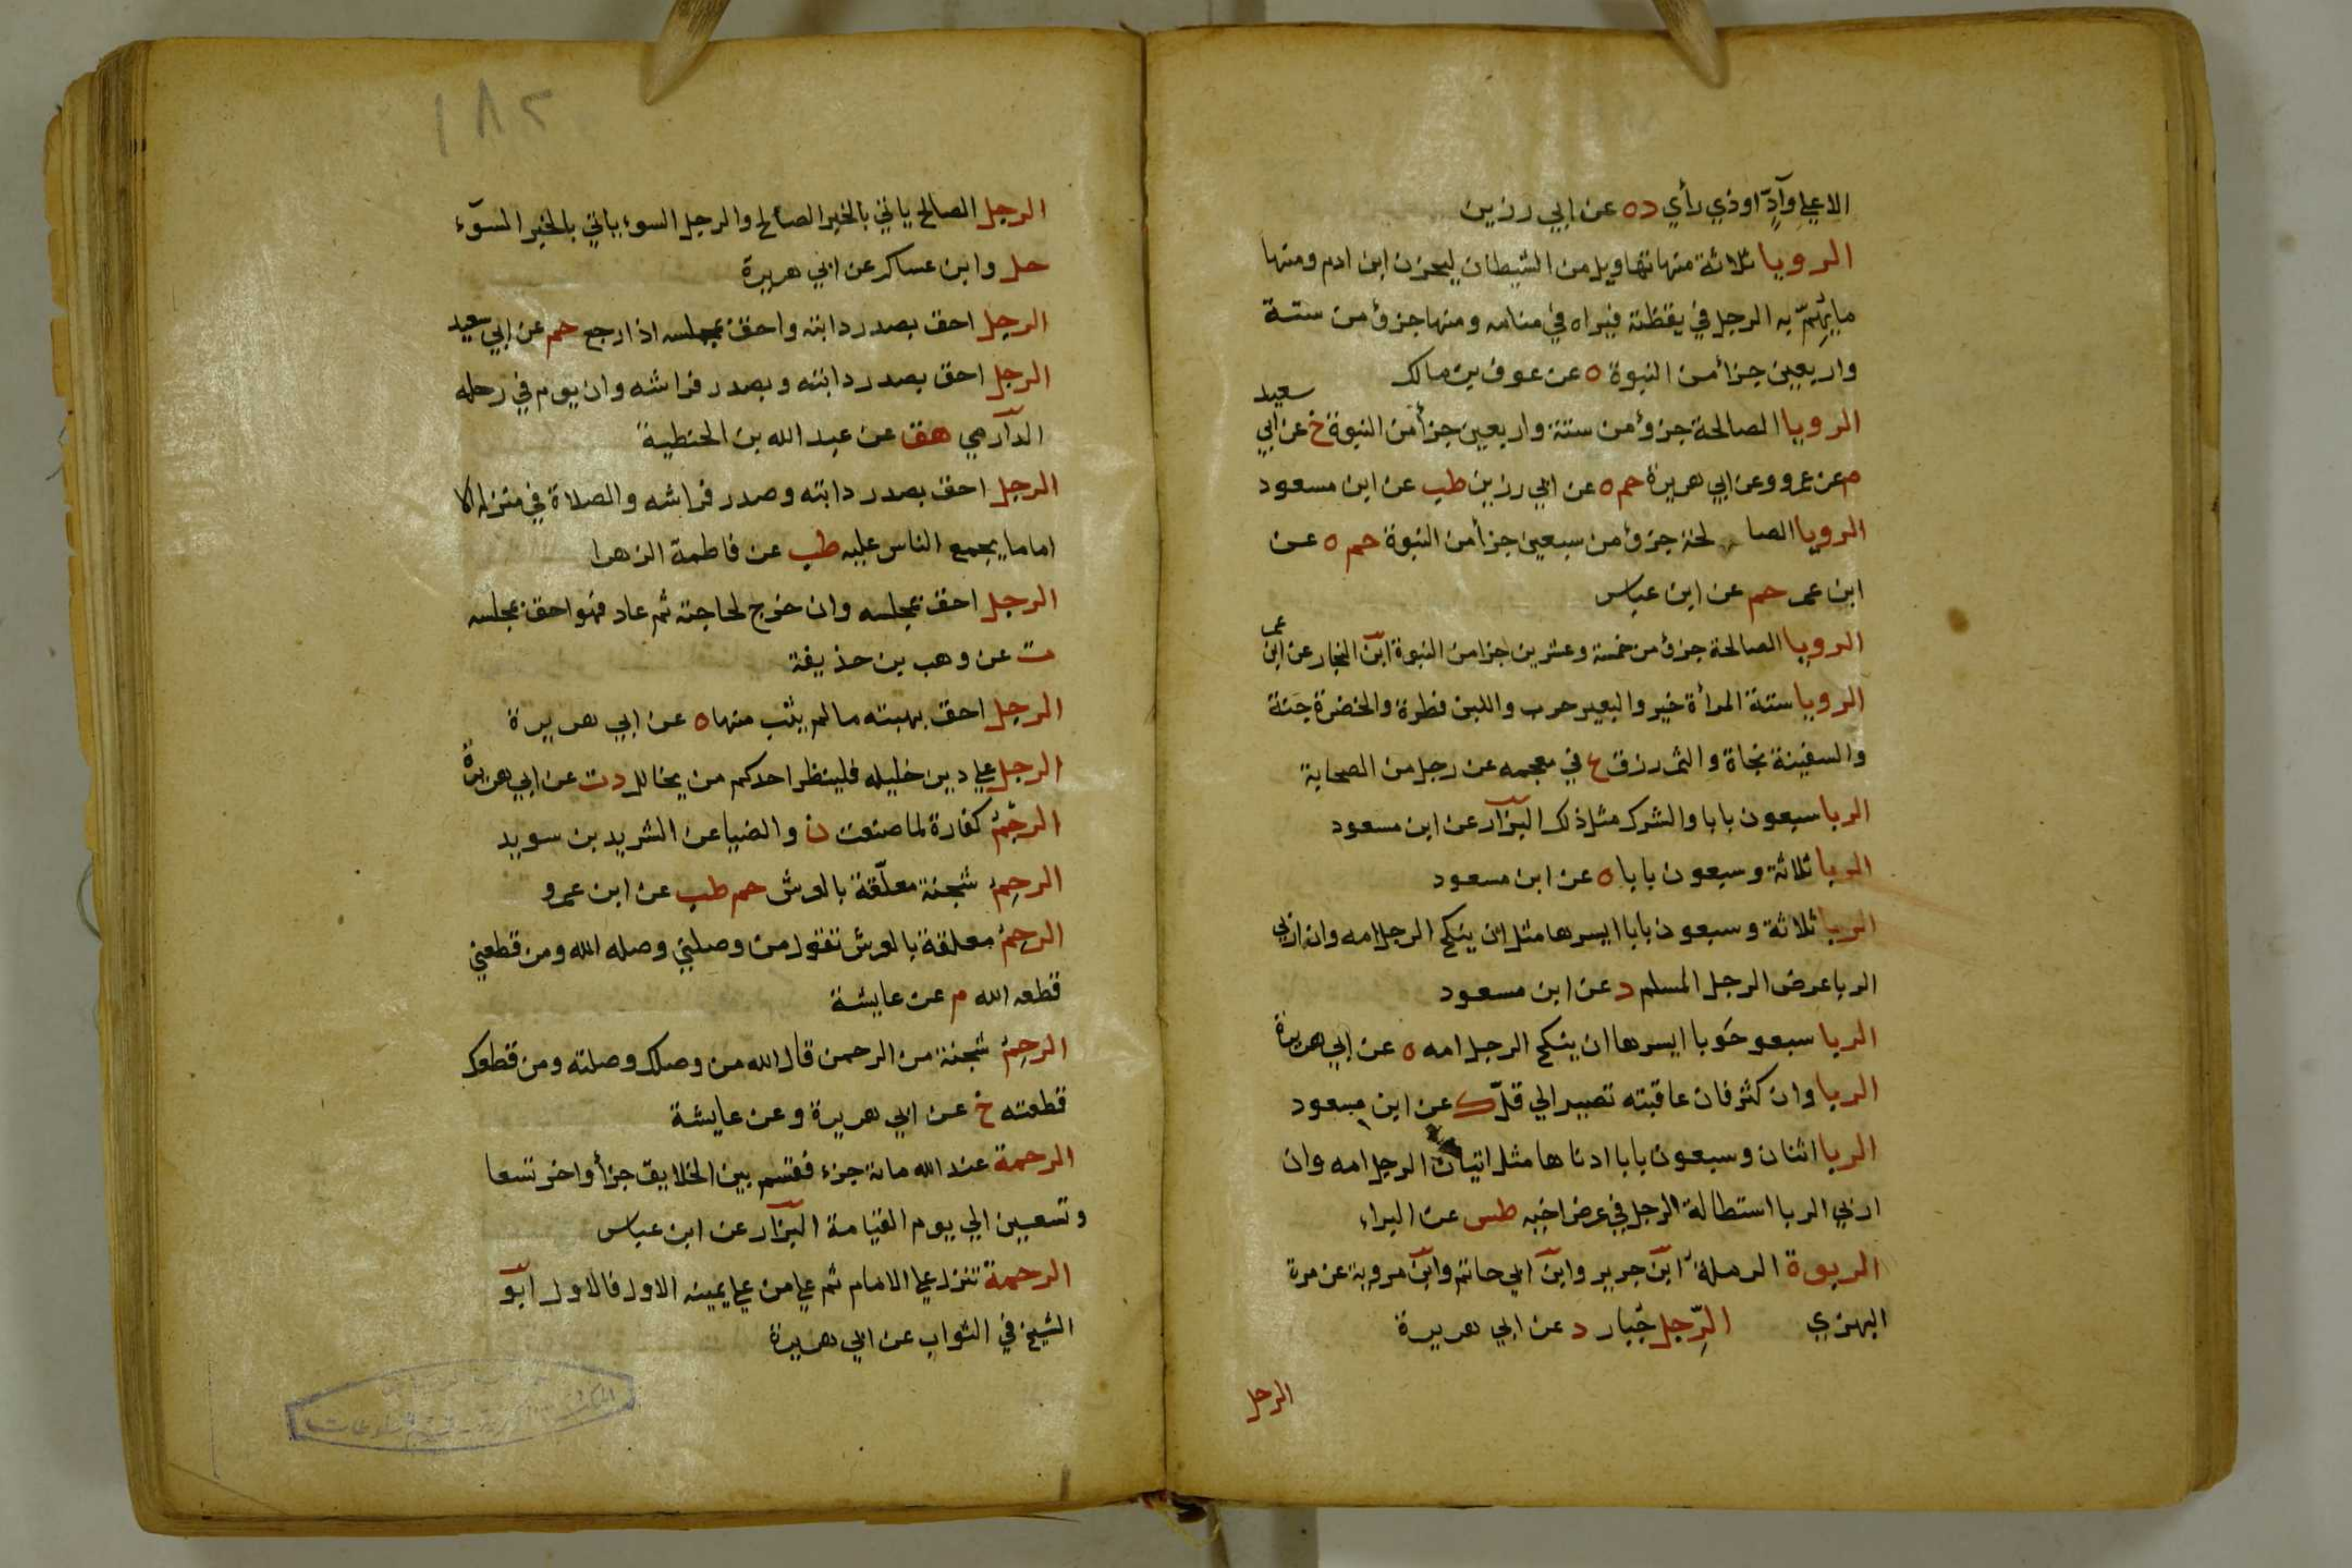 الا علي وادّ او ذي رأي د ه عن ابي رزين
الرويا ثلاثة منها تهاويل من الشيطان ليحزن ابن ادم ومنها
ما يَهِمّ به الرجل في يقظته فيراه في منامه ومنها جزؤ من ستة
واربعين جزأ من النبوة ه عن عوف بن مالك
الرويا الصالحة جزؤ من ستة واربعين جزأ من النبوة خ عن ابي سعيد
م عن عمرو وعن ابي هريرة حم ه عن ابي رزين طب عن ابن مسعود
الرويا الصالحة جزؤ من سبعين جزأ من النبوة حم ه عن
ابن عمر حم عن ابن عباس
الرويا الصالحة جزؤ من خمسة وعشرين جزا من النبوة ابن النجار عن ابن عمر
الرويا ستة المرأة خير والبعير حرب واللبن فطرة والخضرة جَنة
والسفينة نجاة والتمر رزق ع في معجمه عن رجل من الصحابة
الربا سبعون بابا والشرك مثل ذلك البزار عن ابن مسعود
الربا ثلاثة وسبعون بابا ه عن ابن مسعود
الربا ثلاثة وسبعون بابا ايسرها مثل ان ينكح الرجل امه وان اربي
الربا عرض الرجل المسلم د عن ابن مسعود
الربا سبعو حَوبا ايسرها ان ينكح الرجل امه ه عن ابي هريرة
الربا وان كثر فان عاقبته تصير الي قلّ ك عن ابن مسعود
الربا اثنان وسبعون بابا ادناها مثل اتيان الرجل امه وان
اربي الربا استطالة الرجل في عرض اخيه طس عن البراء
الربوة الرملة ابن جرير وابن ابي حاتم وابن مروية عن مرة
البهزي الرِّجل جُبار د عن ابي هريرة
الرجل
١٨٢
الرجل الصالح ياتي بالخير الصالح والرجل السوء ياتي بالخير السوء
حل وابن عساكر عن ابي هريرة
الرجل احق بصدر دابته واحق بمجلسه اذا رجع حم عن ابي سعيد
الرجل احق بصدر دابته وبصدر فراشه وان يوم في رحله
الدارمي هق عن عبد الله بن الحنطية
الرجل احق بصدر دابته وصدر فراشه والصلاة في منزله الا
اماما يجمع الناس عليه طب عن فاطمة الزهرا
الرجل احق بمجلسه وان خرج لحاجته ثم عاد فهو احق بمجلسه
ت عن وهب بن حذيفة
الرجل احق بهبته ما لم يثب منها ه عن ابي هريرة
الرجل علي دين خليله فلينظر احدكم من يخالل د ت عن ابي هريرة
الرجمُ كفارة لما صنعت ن والضيا عن الشريد بن سويد
الرحِمُ شجنة معلّقة بالعرش حم طب عن ابن عمرو
الرحِمُ معلقة بالعرش تقول من وصلني وصله الله ومن قطعني
قطعه الله م عن عايشة
الرحِمُ شجنة من الرحمن قال الله من وصلك وصلته ومن قطعك
قطعته خ عن ابي هريرة وعن عايشة
الرحمة عند الله مائة جزء فقسم بين الخلايق جزأ واخر تسعا
وتسعين الي يوم القيامة البزار عن ابن عباس
الرحمة تنزل علي الامام ثم علي من علي يمينه الاول فالاول ابو
الشيخ في الثواب عن ابي هريرة